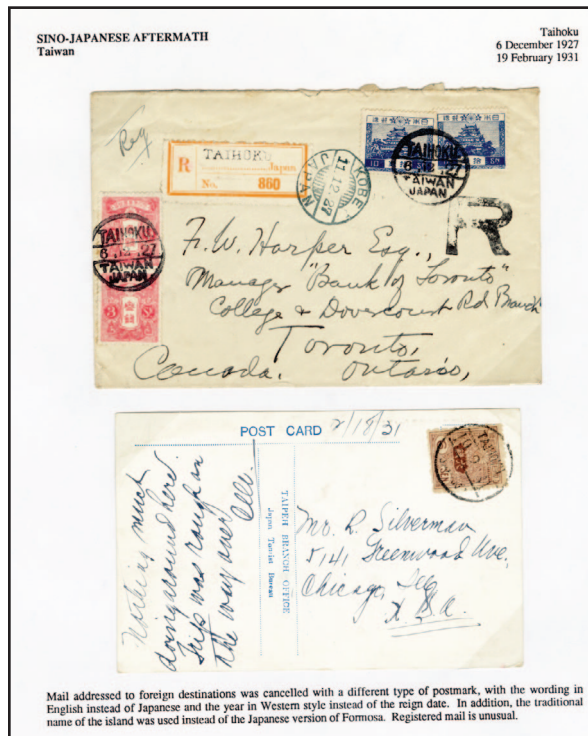 SINO-JAPANESE AFTERMATH
Taiwan
Taihoku
6 December 1927
19 February 1931
Reg
R TAIHOKU
Japan
No. 860
KOBE
11.12.27
JAPAN
TAIHOKU
TAIWAN
JAPAN
R
TAIHOKU
6.12.27
TAIWAN
JAPAN
3 Sn
F. W. Harper Esq.,
Manager "Bank of Toronto"
College & Dovercourt Rd Branch
Toronto,
Canada. Ontario,
POST CARD 2/18/31
TAIHOKU
TAIPEH BRANCH OFFICE
Japan Tourist Bureau
Nothing much
doing around here.
Trip was rough on
the way over
Mr. R. Silverman
5141 Greenwood Ave.
Chicago Ill
Mail addressed to foreign destinations was cancelled with a different type of postmark, with the wording in
English instead of Japanese and the year in Western style instead of the reign date. In addition, the traditional
name of the island was used instead of the Japanese version of Formosa. Registered mail is unusual.